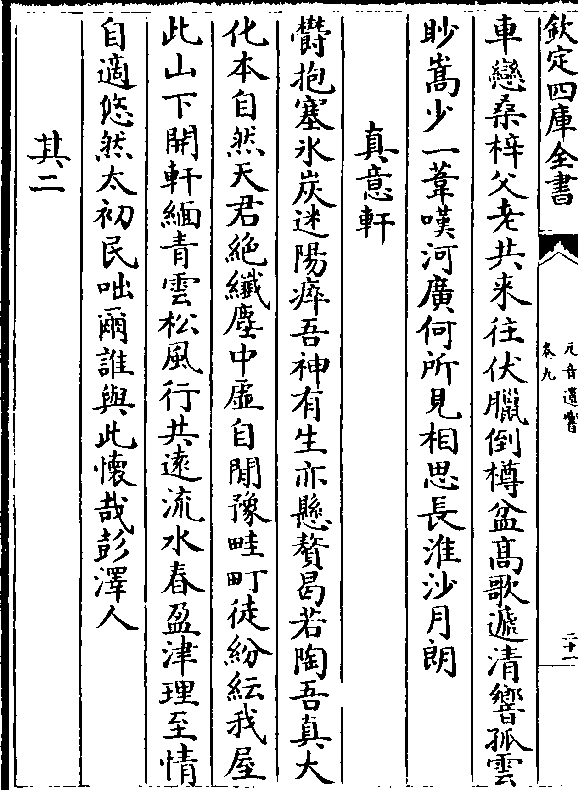 欽定四庫全書
元音遺響
卷九
二十一
車戀桑梓父老共来往伏臘倒樽盆髙歌遞清響孤雲
眇嵩少一葦嘆河廣何所見相思長淮沙月朗
真意軒
欝抱塞氷炭迷陽瘁吾神有生亦懸贅曷若陶吾真大
化本自然天君絶纎塵中虛自閒豫畦町徒紛紜我屋
此山下開軒緬青雲松風行共逺流水春盈津理至情
自適悠然太初民咄爾誰與此懐哉彭澤人
其二